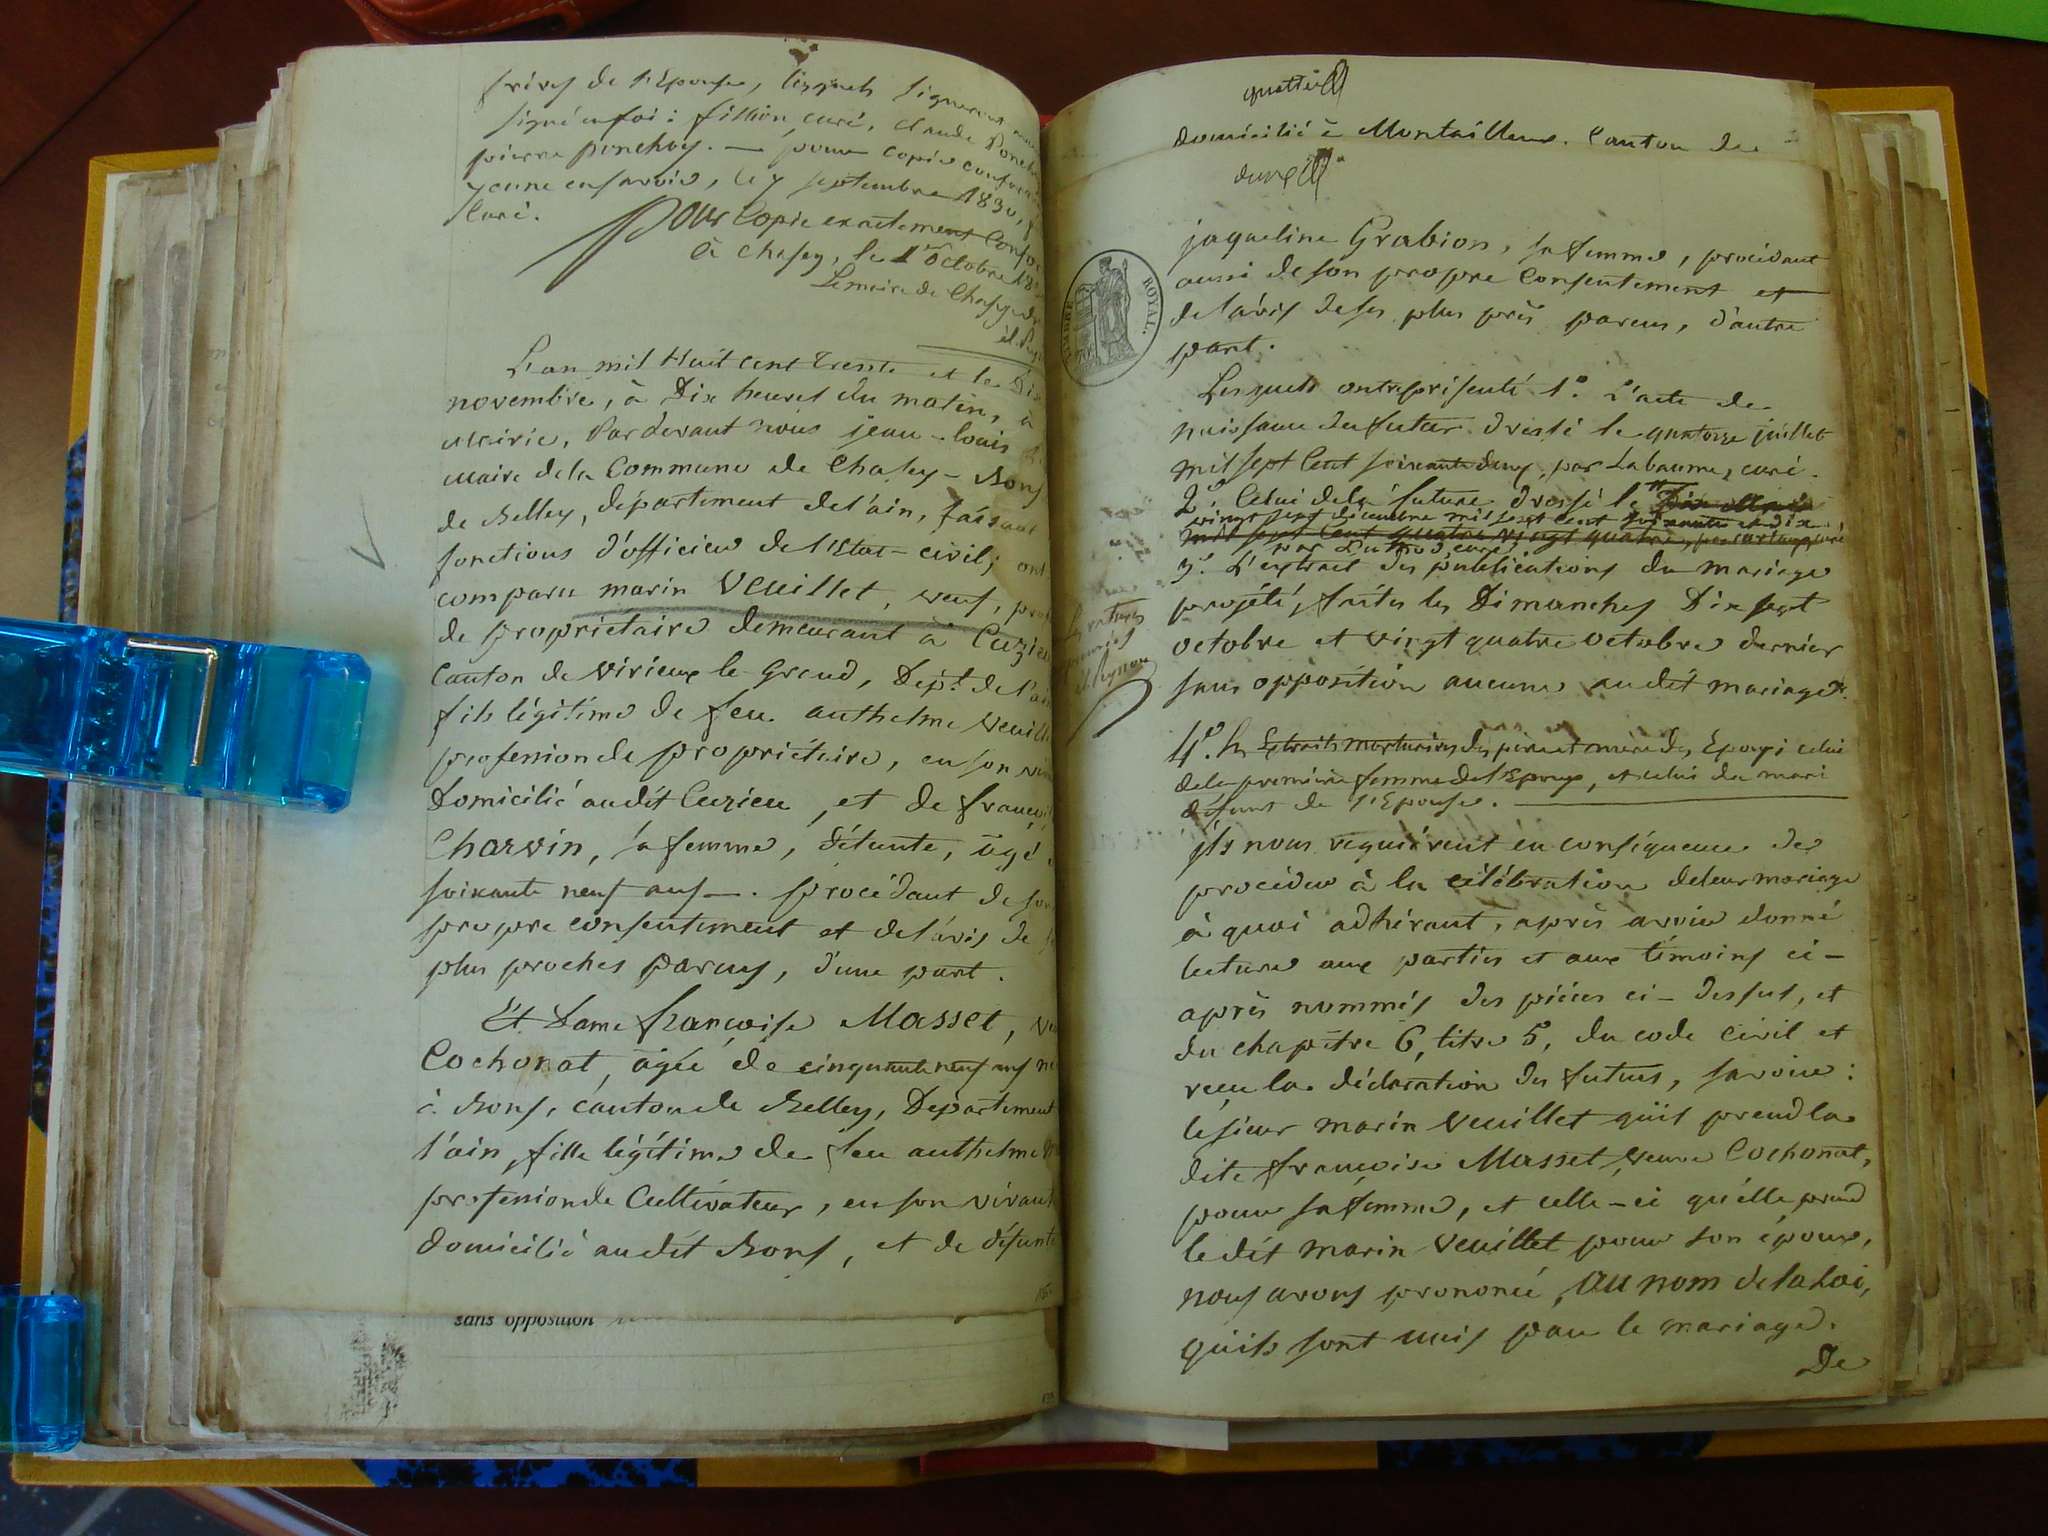 frères de l'Epouse, lesquels signeront
signé en foi : fillion curé, claude Ponchoy
pierre ponchoy. — pour copie conforme
yenne en savoie, le 7 septembre 1830,
Curé.
Pour Copie exactement Confor
à Chasey, le 1er octobre 18
Le maire de Chasey
L'an mil Huit cent trente et le Dix
novembre, à Dix heures du matin, à
mairie, Pardevant nous jean-louis
maire de la Commune de Chasey-Bons
de Belley, département de l'ain, faisant
fonctions d'officier de l'Etat-civil; ont
comparu marin Veuillet, veuf, prof
de propriétaire demeurant à Cuzieu
Canton de virieux le grand, Dépt. de l'ain
fils légitime de feu anthelme Veuill
profession de propriétaire, en son viva
Domicilié audit Cuzieu, et de françoi
Charvin, sa femme, défunte, âgé
soixante neuf ans —. procédant de son
propre consentement et de l'avis de s
plus proches parens, d'une part.
Et Dame françoise Masset, Ve
Cochonat, âgée de cinquante neuf ans n
à Bons, canton de Belley, Département
l'ain, fille légitime de feu anthelme M
profession de Cultivateur, en son vivant
domicilié audit Bons, et de défunte
sans opposition
quatre
domicilié à Montailleur. Canton de
deux
jaqueline Grabion, sa femme, procédant
aussi de son propre Consentement et
de l'avis de ses plus près parens, d'autre
part.
TIMBRE ROYAL.
Lesquels ont représenté 1°. L'acte de
naissance du futur dressé le quatorze juillet
mil sept Cent soixante deux, par Labaume, curé.
2°. Celui de la future dressé le
vingt sept décembre mil sept cent soixante et dix
mil sept Cent quatre vingt quatre, par curé
par curé
3°. L'extrait des publications du mariage
projeté, faites les Dimanches Dix sept
octobre et vingt quatre octobre dernier
sans opposition aucune audit mariage.
4°. les Extraits mortuaires des père et mère des Epoux celui
de la première femme de l'Epoux, et celui du mari
défunt de l'Epouse.
ils nous requièrent en conséquence de
procéder à la célébration de leur mariage
à quoi adhérant, après avoir donné
lecture aux parties et aux témoins ci-
après nommés des pièces ci-dessus, et
du chapitre 6, titre 5, du code civil et
reçu la déclaration des futurs, savoir :
le sieur marin Veuillet qu'il prend la
dite françoise Masset, veuve Cochonat,
pour sa femme, et celle-ci qu'elle prend
ledit marin Veuillet pour son époux,
nous avons prononcé, Au nom de la Loi,
qu'ils sont unis par le mariage.
De